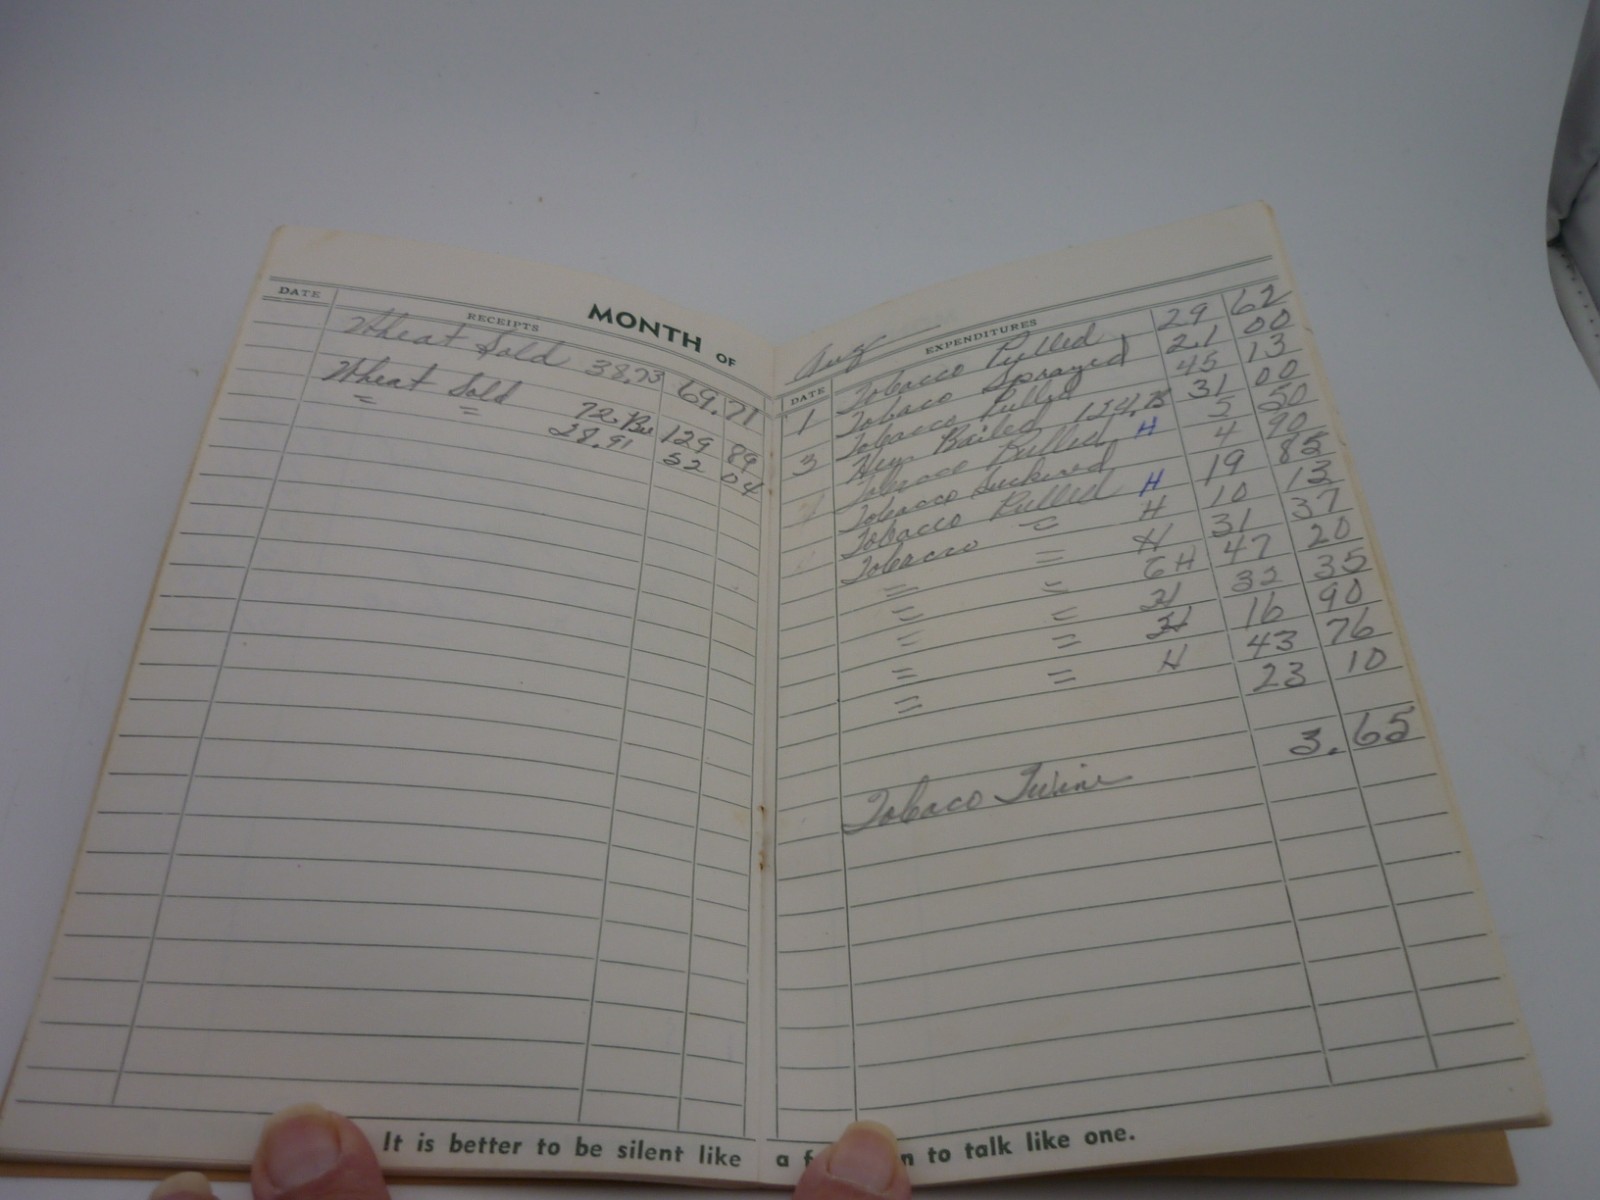 MONTH OF Aug
DATE RECEIPTS
Wheat Sold 38.73 69.71
Wheat Sold 72. Bu 129 89
= = 28.91 52 04
DATE EXPENDITURES
1 Tobacco Pulled 29 62
Tobaco Sprayed 21 00
Tobacco Pulled 45 13
3 Hay Bailed 124. 31 00
Tobacco Pulled H 5 50
Tobacco Suckered 4 90
Tobacco Pulled H 19 85
Tobacco = H 10 13
= = H 31 37
= = 6H 47 20
= = H 32 35
= = H 16 90
= = H 43 76
23 10
Tobaco Twine 3.65
It is better to be silent like a f n to talk like one.